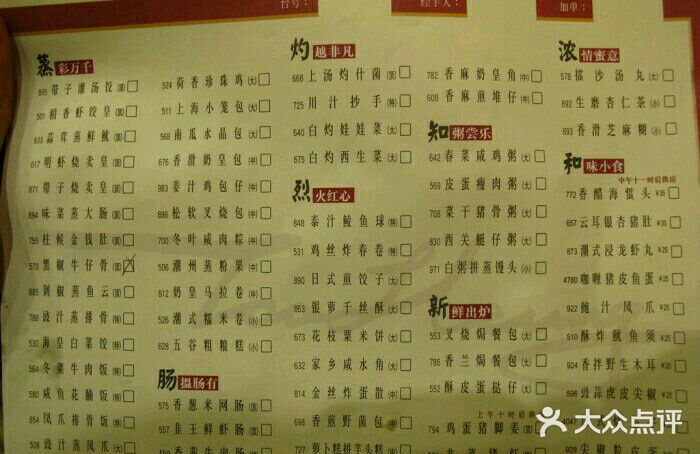 台号：
经手人：
加单：
蒸彩万千
895 带子灌汤饺(顶)
501 稻香虾饺皇(顶)
933 蒜茸蒸鲜鱿(顶)
617 明虾烧卖皇(顶)
871 带子烧卖皇(顶)
894 味菜蒸大肠(顶)
755 柱候金钱肚(顶)
570 黑椒牛仔骨(顶)
885 剁椒蒸鱼云(顶)
788 豉汁蒸排骨(特)
530 海皇白菜饺(特)
564 冬菜牛肉饭(特)
580 咸鱼花腩饭(特)
854 凤爪排骨饭(特)
508 豉汁蒸凤爪(大)
524 荷香珍珠鸡(大)
511 上海小笼包(大)
568 南瓜水晶包(大)
676 香滑奶皇包(中)
983 姜汁鸡包仔(中)
886 松软叉烧包(中)
700 冬叶咸肉粽(中)
506 潮州蒸粉果(中)
812 奶皇马拉卷(中)
526 潮式糯米卷(小)
628 五谷粗粮糕(小)
肠揾肠有
575 香葱米网肠(顶)
557 韭王鲜虾肠(顶)
灼越非凡
668 上汤灼什菌(顶)
725 川汁抄手(特)
640 白灼娃娃菜(大)
675 白灼西生菜(大)
烈火红心
848 泰汁鲮鱼球(特)
531 鸡丝炸春卷(特)
890 日式煎饺子(大)
863 银萝千丝酥(大)
673 花枝粟米饼(大)
632 家乡咸水角(大)
814 金丝炸蛋散(中)
696 香煎野菌包(中)
727 萝卜糕拼芋头糕
782 香麻奶皇角(中)
608 香麻煎堆仔(中)
知粥尝乐
642 春菜咸鸡粥(大)
569 皮蛋瘦肉粥(大)
708 菜干猪骨粥(大)
830 西关艇仔粥(大)
971 白粥拼蒸馒头(小)
新鲜出炉
553 叉烧焗餐包(大)
786 香兰焗餐包(大)
552 酥皮蛋挞仔(大)
上午十时后供
794 鸡蛋猪脚姜(顶)
浓情蜜意
578 擂沙汤丸(大)
892 生磨杏仁茶(小)
693 香滑芝麻糊(小)
和味小食
中午十一时后供应
772 香醋海蜇头 ¥35
657 云耳银杏猪肚
873 潮式浸龙虾丸
4780 咖喱猪皮鱼蛋
922 鲍汁凤爪 ¥25
510 酥炸鱿鱼须 ¥25
924 香拌野生木耳 ¥20
596 豉蒜虎皮尖椒 ¥20
4047
928 尖椒粒皮蛋
大众点评